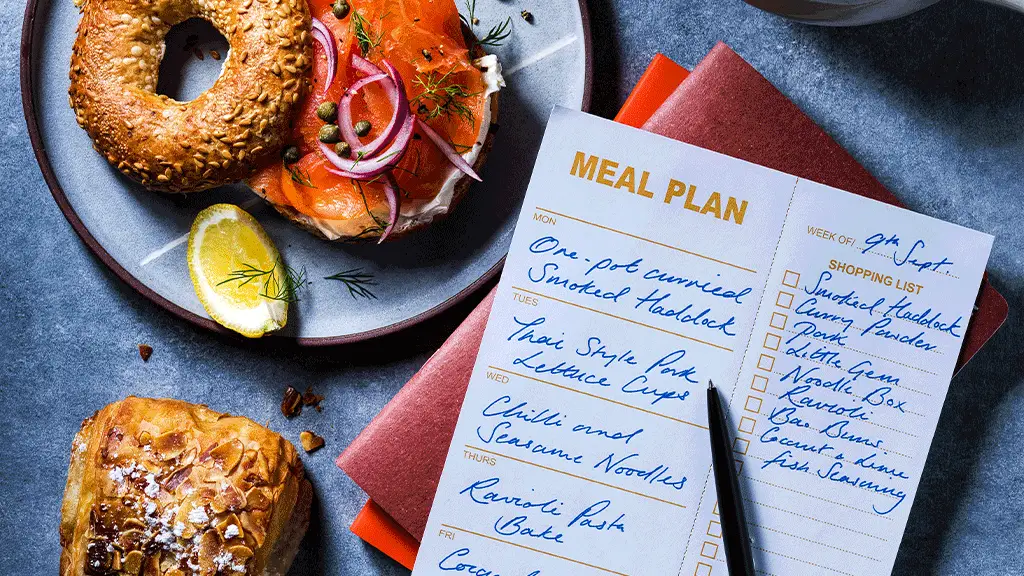 MEAL PLAN
MON
One-pot curried
Smoked Haddock
TUES
Thai Style Pork
Lettuce Cups
WED
Chilli and
Seasame Noodles
THURS
Ravioli Pasta
Bake
FRI
WEEK OF/ 9th Sept.
SHOPPING LIST
Smoked Haddock
Curry Powder
Pork
Little Gem
Noodle Box
Ravioli
Bao Buns
& Lime
fish Seasoning